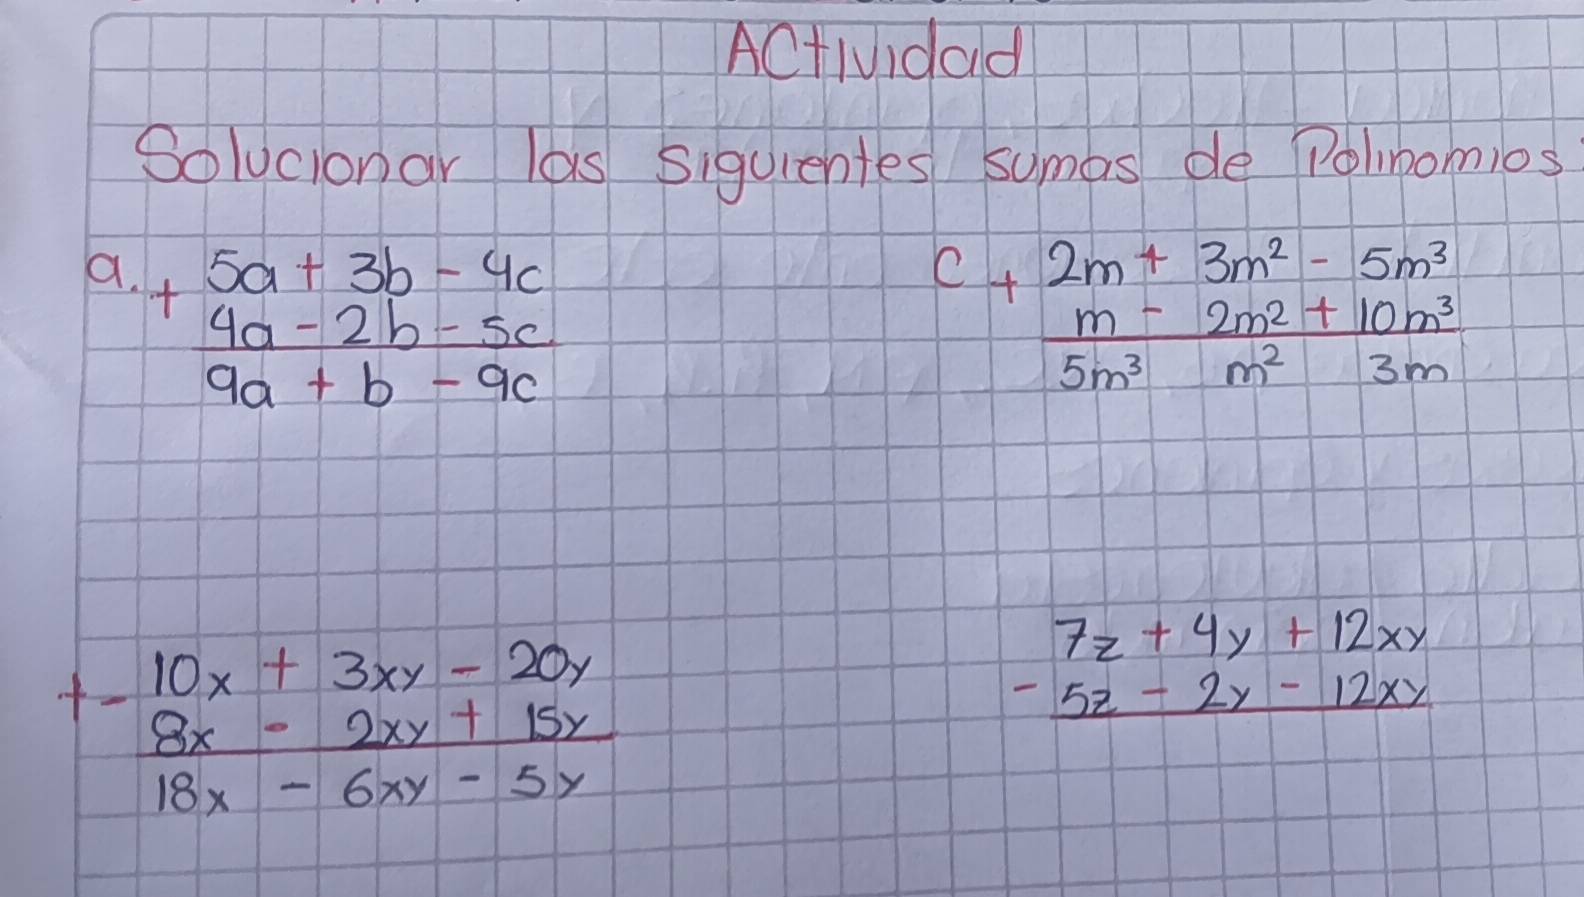 Actividad
Solucionar las siguientes sumas de Polinomios
a. + 5a + 3b - 4c
4a - 2b - 5c
9a + b - 9c
C + 2m + 3m² - 5m³
m - 2m² + 10m³
5m³ m² 3m
+ - 10x + 3xy - 20y
8x - 2xy + 15y
18x - 6xy - 5y
7z + 4y + 12xy
- 5z - 2y - 12xy